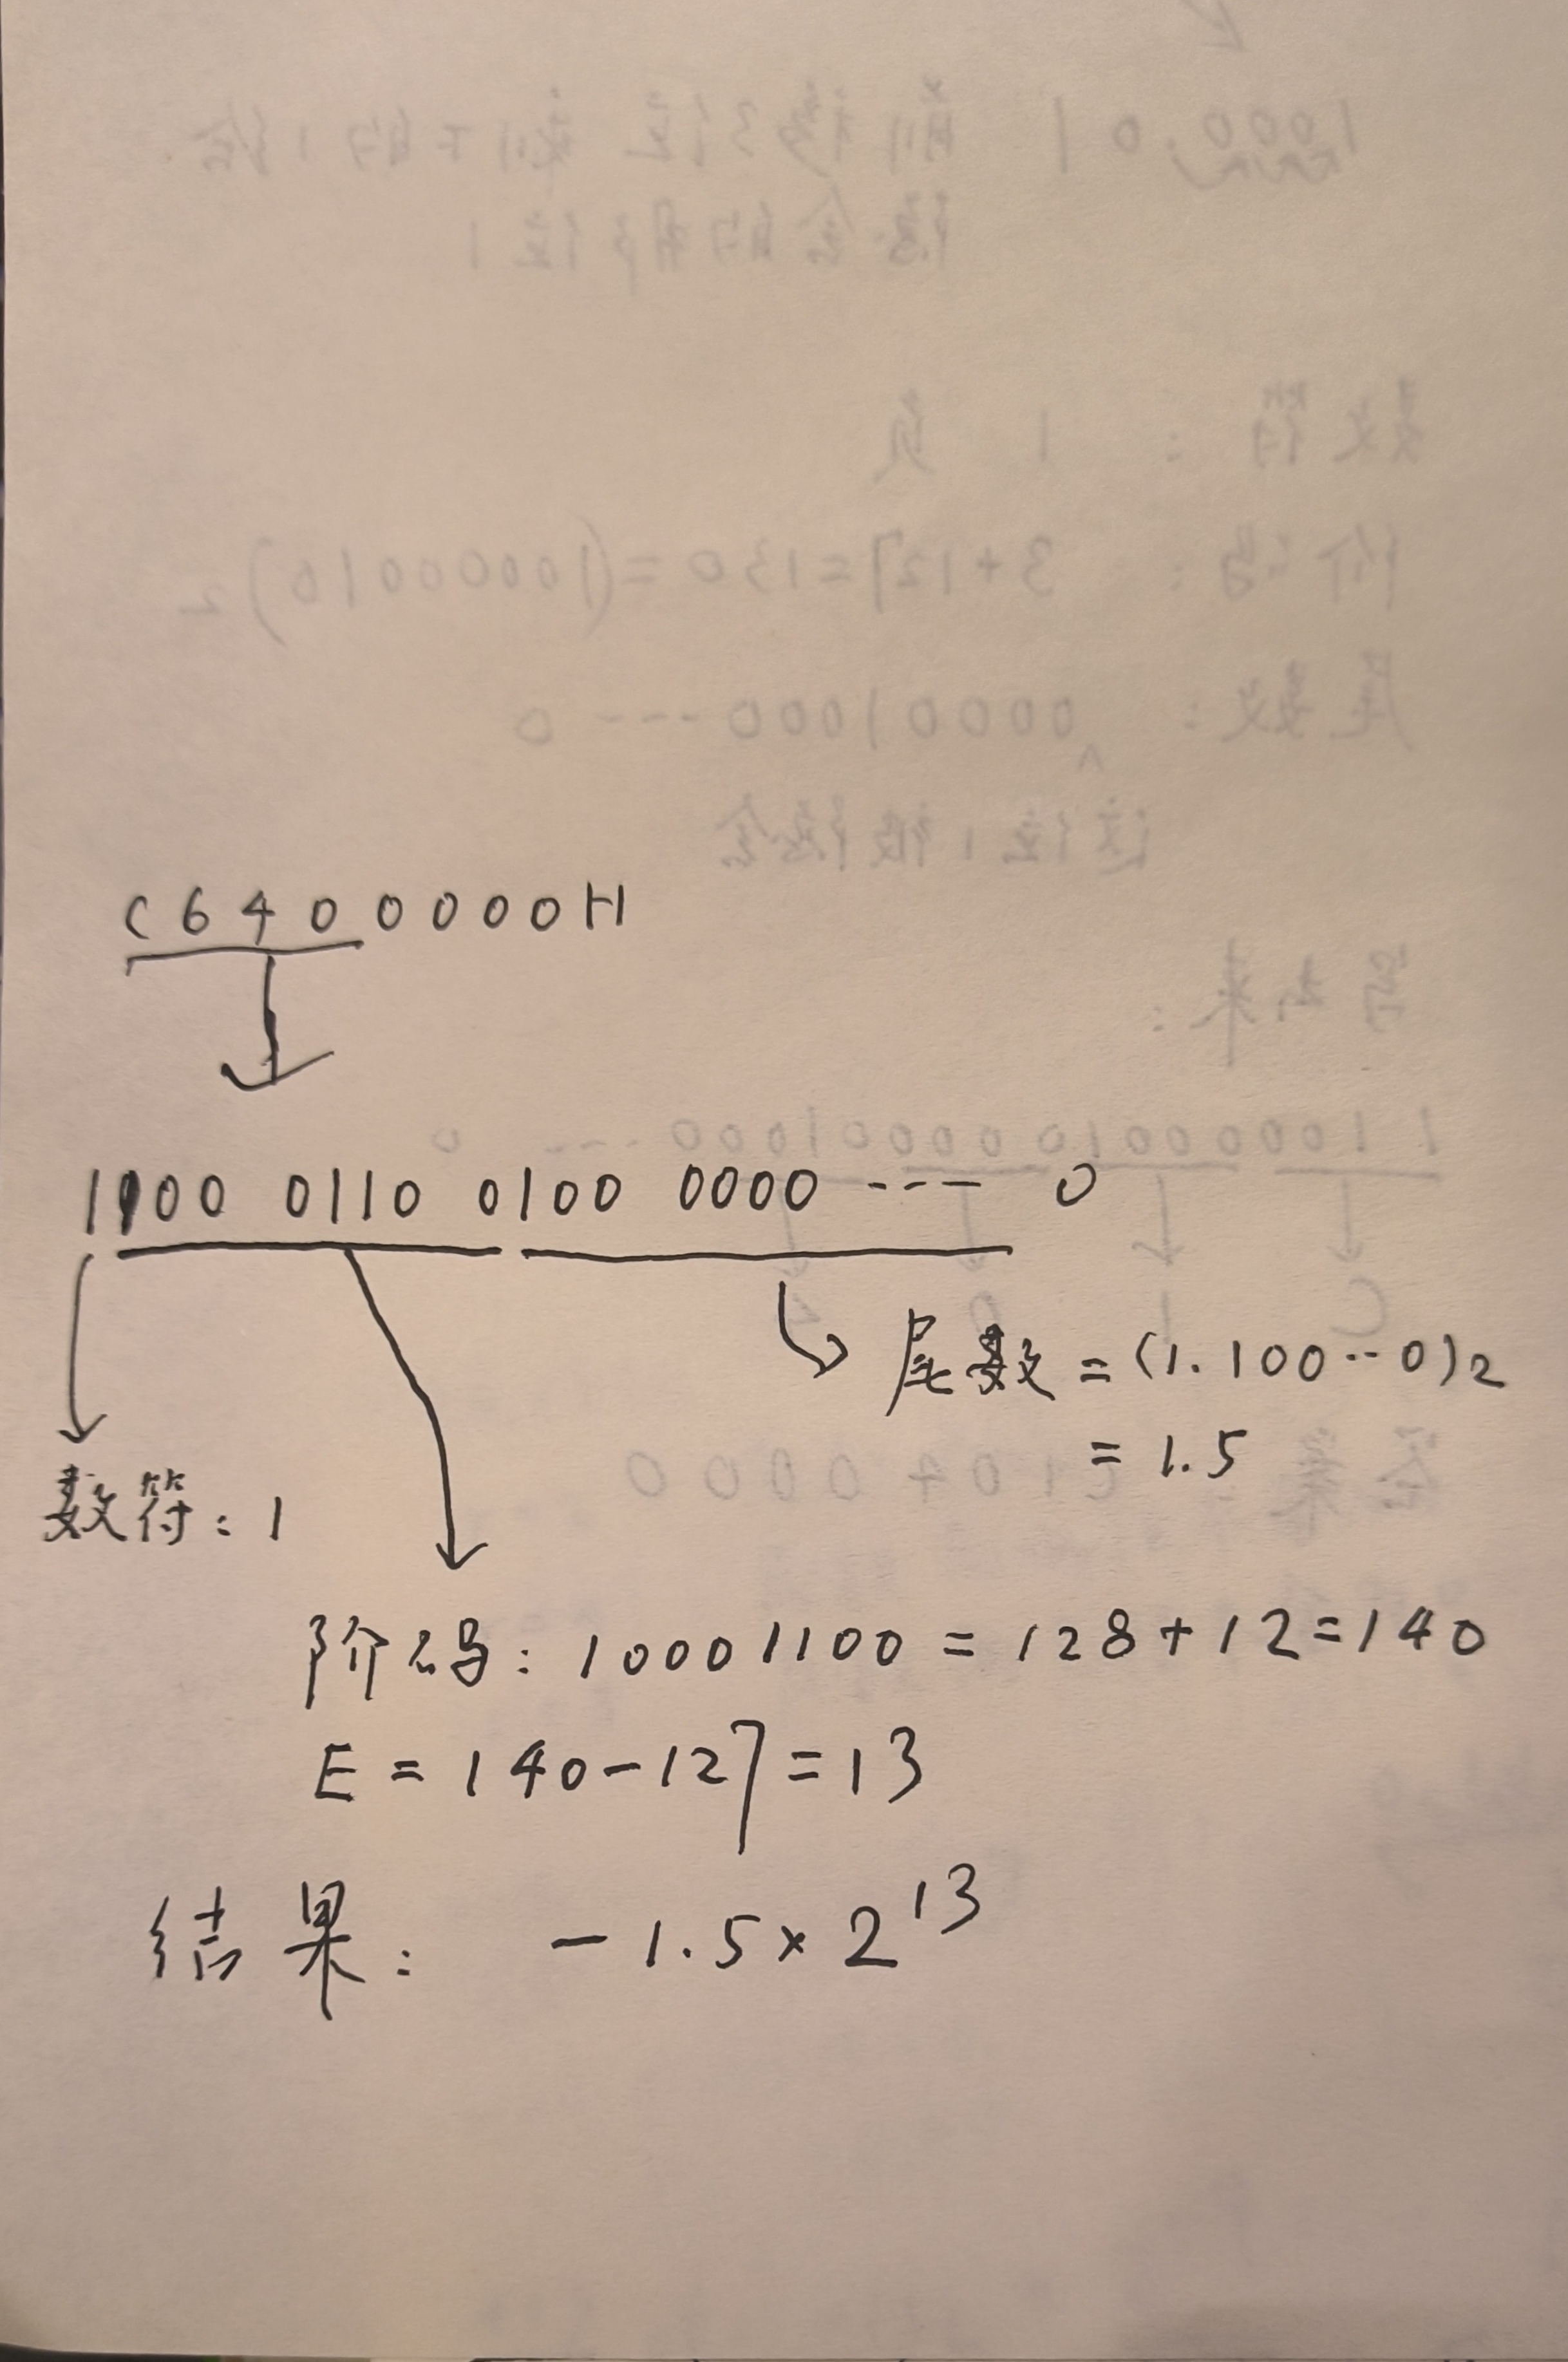 C6400000H
1100 0110 0100 0000 --- 0
尾数 = (1.100··0)2
= 1.5
数符: 1
阶码: 10001100 = 128+12=140
E = 140-127=13
结果: -1.5×2^13